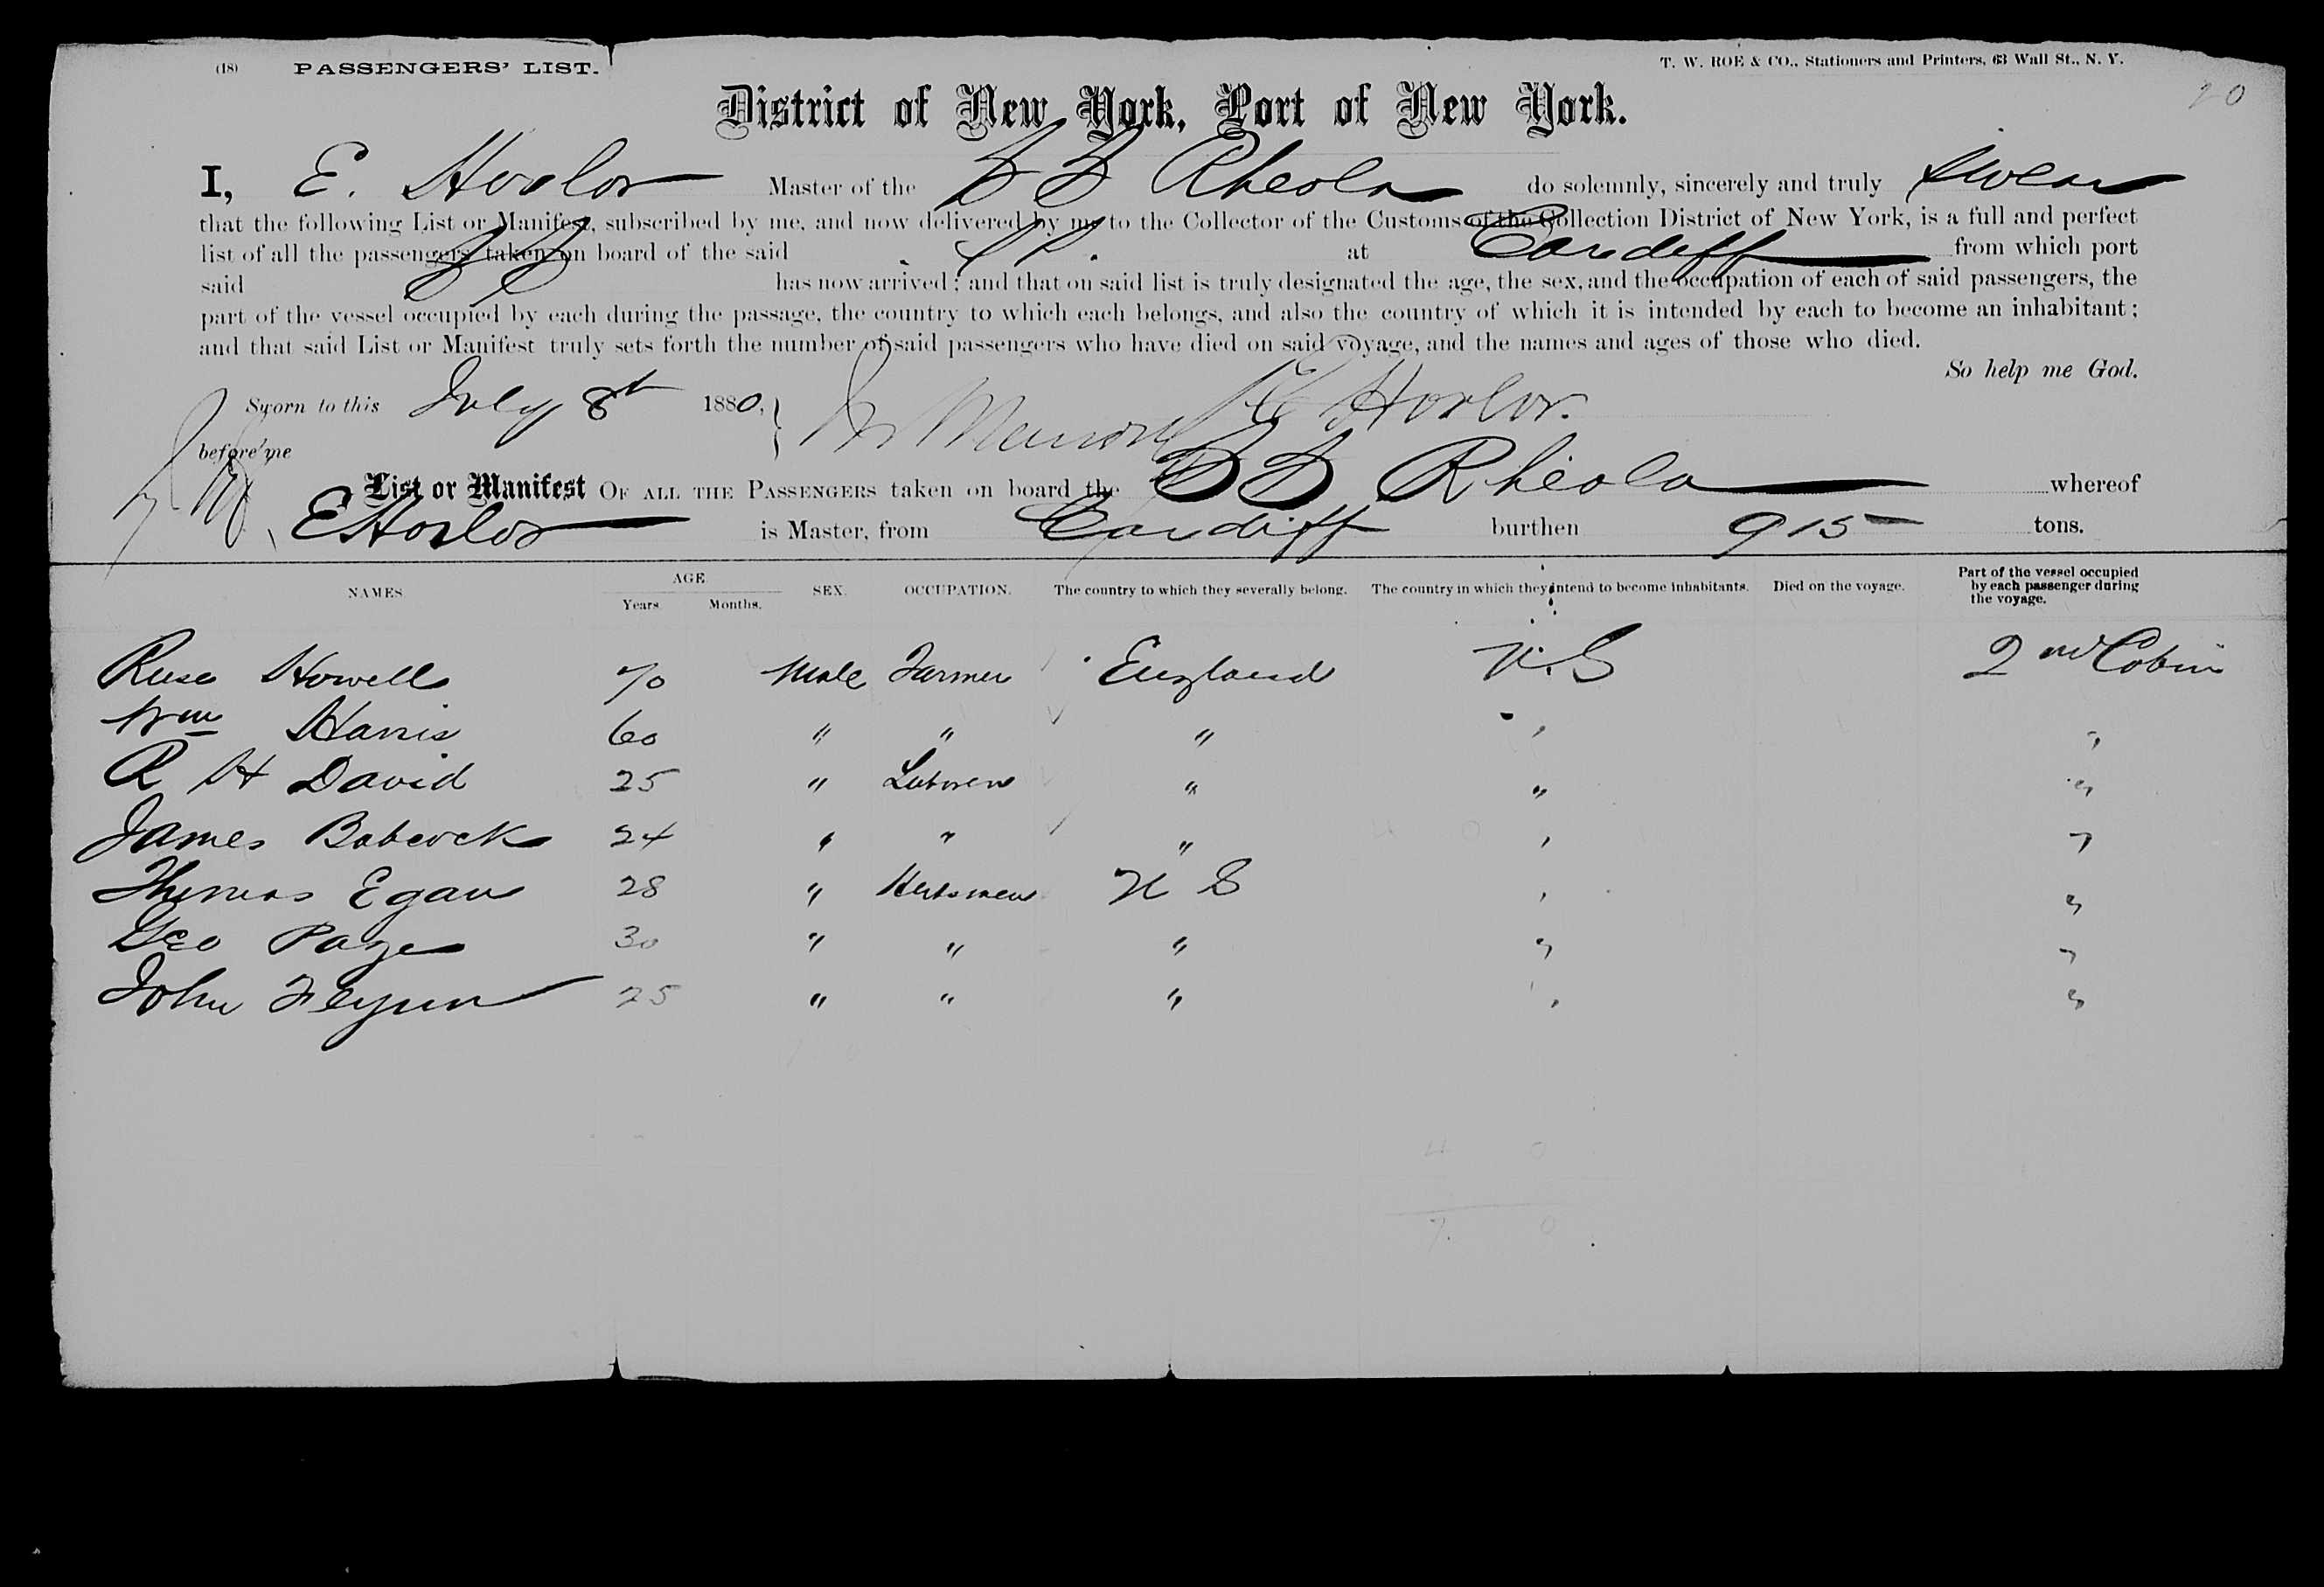 (18) PASSENGERS' LIST. T. W. ROE & CO., Stationers and Printers, 63 Wall St., N. Y.
20
District of New York, Port of New York.
I, E. Horlor Master of the SS Rheola do solemnly, sincerely and truly swear
that the following List or Manifest, subscribed by me, and now delivered by me to the Collector of the Customs of the Collection District of New York, is a full and perfect
list of all the passengers taken on board of the said SS. at Cardiff from which port
said SS has now arrived; and that on said list is truly designated the age, the sex, and the occupation of each of said passengers, the
part of the vessel occupied by each during the passage, the country to which each belongs, and also the country of which it is intended by each to become an inhabitant;
and that said List or Manifest truly sets forth the number of said passengers who have died on said voyage, and the names and ages of those who died.
So help me God.
Sworn to this July 8th 1880, } E Horlor.
before me
List or Manifest OF ALL THE PASSENGERS taken on board the SS Rheola whereof
E Horlor is Master, from Cardiff burthen 915 tons.
NAMES. AGE Years. Months. SEX. OCCUPATION. The country to which they severally belong. The country in which they intend to become inhabitants. Died on the voyage. Part of the vessel occupied by each passenger during the voyage.
Reese Howell 70 Male Farmer England U.S 2nd Cabin
Wm Harris 60 " " " " "
R H David 25 " Laborers " " "
James Babcock 24 " " " " "
Thomas Egan 28 " U S " "
Geo Page 30 " " " " "
John Flynn 25 " " " " "
4 0
7. 0